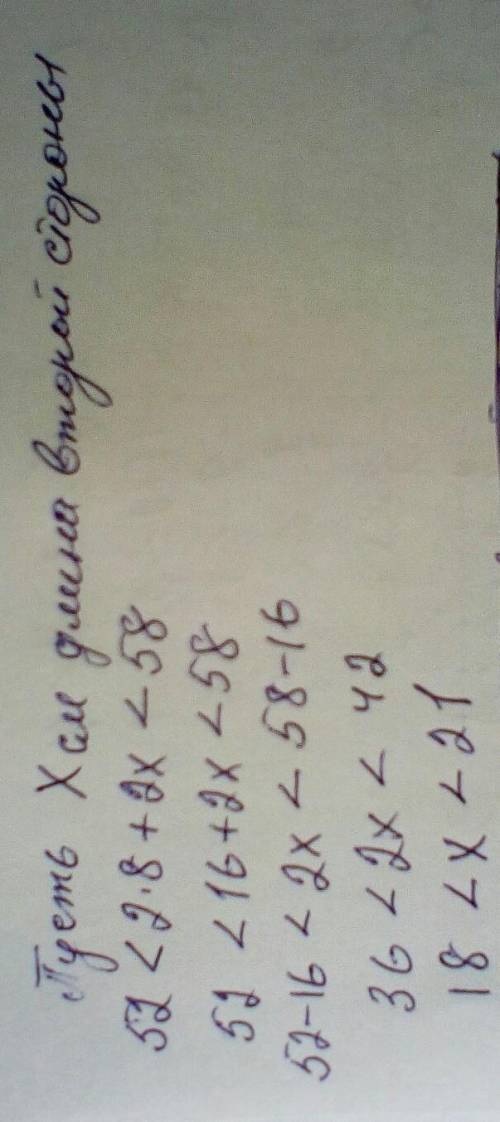 Пусть X см длина второй стороны
52 < 2·8 + 2x < 58
52 < 16 + 2x < 58
52-16 < 2x < 58-16
36 < 2x < 42
18 < x < 21